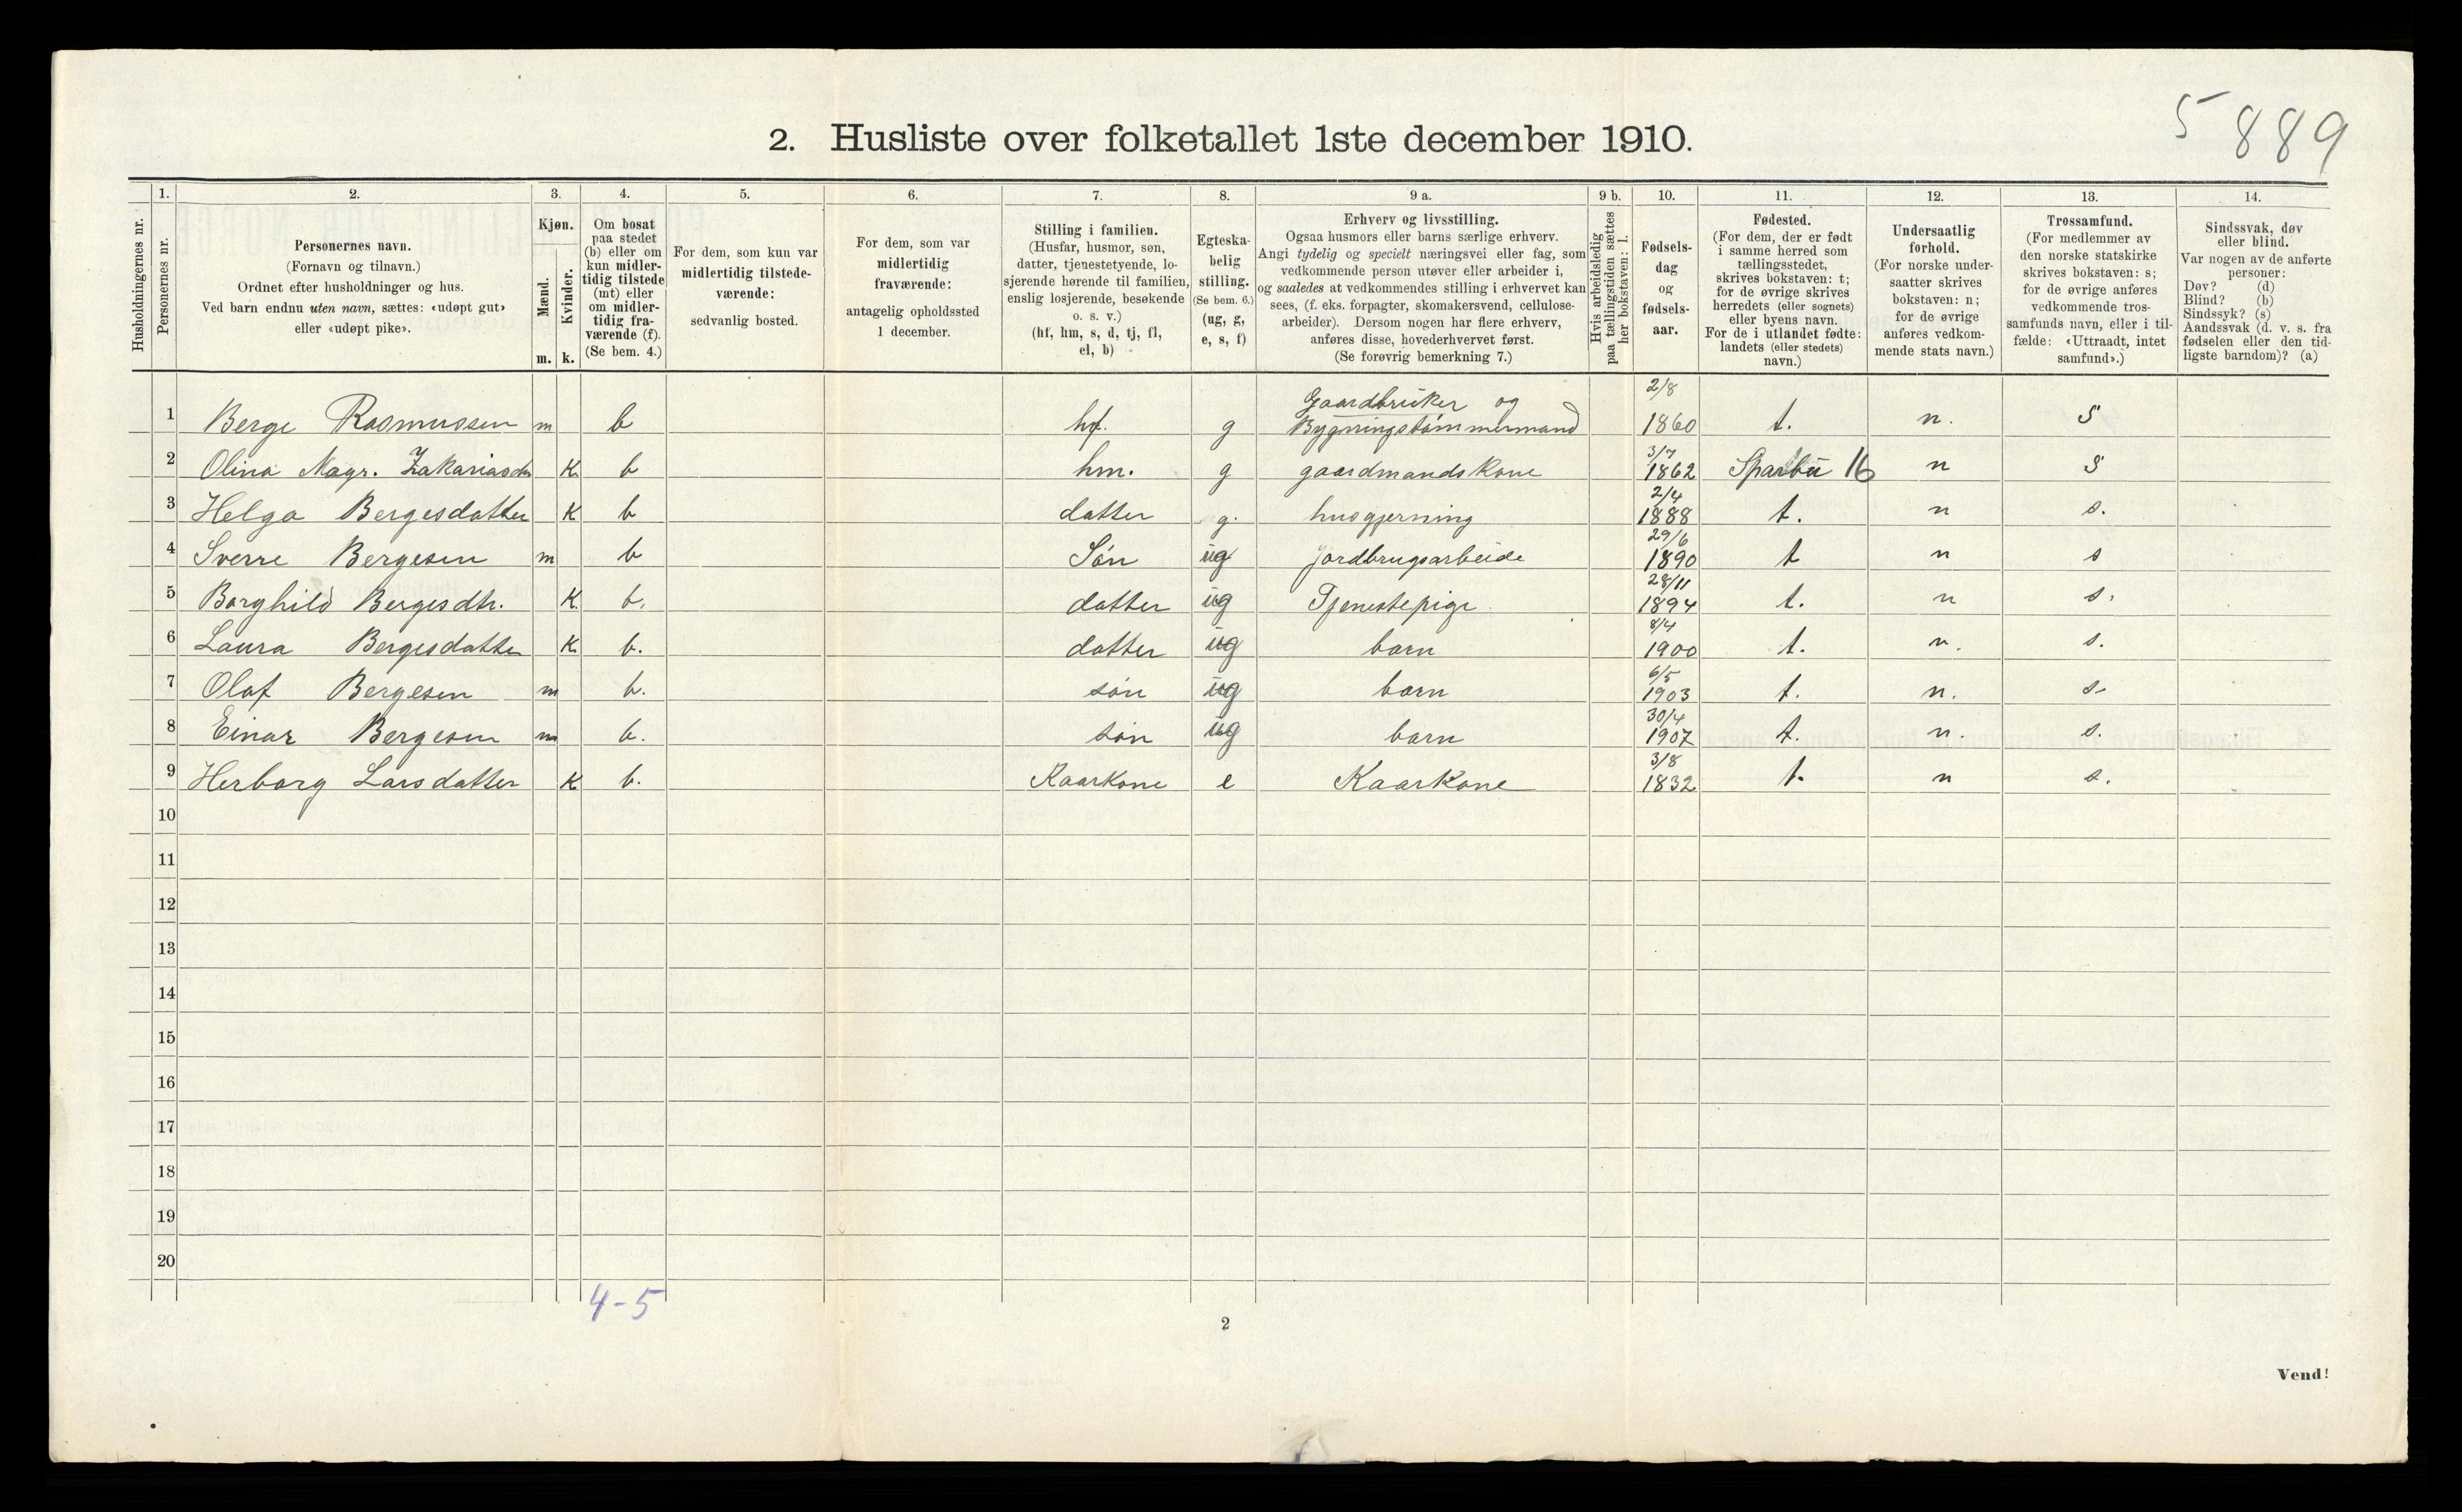 5 889
2. Husliste over folketallet 1ste december 1910.
1. 2. 3. 4. 5. 6. 7. 8. 9 a. 9 b. 10. 11. 12. 13. 14.
Husholdningernes nr.
Personernes nr.
Personernes navn.
(Fornavn og tilnavn.)
Ordnet efter husholdninger og hus.
Ved barn endnu uten navn, sættes: «udøpt gut»
eller «udøpt pike».
Kjøn.
Mænd.
Kvinder.
m. k.
Om bosat
paa stedet
(b) eller om
kun midler-
tidig tilstede
(mt) eller
om midler-
tidig fra-
værende (f).
(Se bem. 4.)
For dem, som kun var
midlertidig tilstede-
værende:
sedvanlig bosted.
For dem, som var
midlertidig
fraværende:
antagelig opholdssted
1 december.
Stilling i familien.
(Husfar, husmor, søn,
datter, tjenestetyende, lo-
sjerende hørende til familien,
enslig losjerende, besøkende
o. s. v.)
(hf, hm, s, d, tj, fl,
el, b)
Egteska-
belig
stilling.
(Se bem. 6.)
(ug, g,
e, s, f)
Erhverv og livsstilling.
Ogsaa husmors eller barns særlige erhverv.
Angi tydelig og specielt næringsvei eller fag, som
vedkommende person utøver eller arbeider i,
og saaledes at vedkommendes stilling i erhvervet kan
sees, (f. eks. forpagter, skomakersvend, cellulose-
arbeider). Dersom nogen har flere erhverv,
anføres disse, hovederhvervet først.
(Se forøvrig bemerkning 7.)
Hvis arbeidsledig
paa tællingstiden sættes
her bokstaven: l.
Fødsels-
dag
og
fødsels-
aar.
Fødested.
(For dem, der er født
i samme herred som
tællingsstedet,
skrives bokstaven: t;
for de øvrige skrives
herredets (eller sognets)
eller byens navn.
For de i utlandet fødte:
landets (eller stedets)
navn.)
Undersaatlig
forhold.
(For norske under-
saatter skrives
bokstaven: n;
for de øvrige
anføres vedkom-
mende stats navn.)
Trossamfund.
(For medlemmer av
den norske statskirke
skrives bokstaven: s;
for de øvrige anføres
vedkommende tros-
samfunds navn, eller i til-
fælde: «Uttraadt, intet
samfund».)
Sindssvak, døv
eller blind.
Var nogen av de anførte
personer:
Døv? (d)
Blind? (b)
Sindssyk? (s)
Aandssvak (d. v. s. fra
fødselen eller den tid-
ligste barndom)? (a)
1 Berge Rasmussen m b hf. g Gaardbruker og Bygningstømmermand 2/8 1860 t. n. S
2 Olina Magr. Zakariasdr K b hm. g gaardmandskone 3/7 1862 Sparbu 16 n S
3 Helga Bergesdatter K b datter g. husgjerning 2/4 1888 t. n s.
4 Sverre Bergesen m b Søn ug jordbrugsarbeide 29/6 1890 t n s
5 Borghild Bergesdtr. K b. datter ug Tjenestepige 28/11 1894 t. n s.
6 Laura Bergesdatter K b. datter ug barn 8/4 1900 t. n. s.
7 Olaf Bergesen m b. søn ug barn 6/5 1903 t. n. s.
8 Einar Bergesen m b. søn ug barn 30/4 1907 t. n. s.
9 Herborg Larsdatter K b. Kaarkone e Kaarkone 3/8 1832 t. n s.
10
11
12
13
14
15
16
17
18
19
20
4-5
2
Vend!